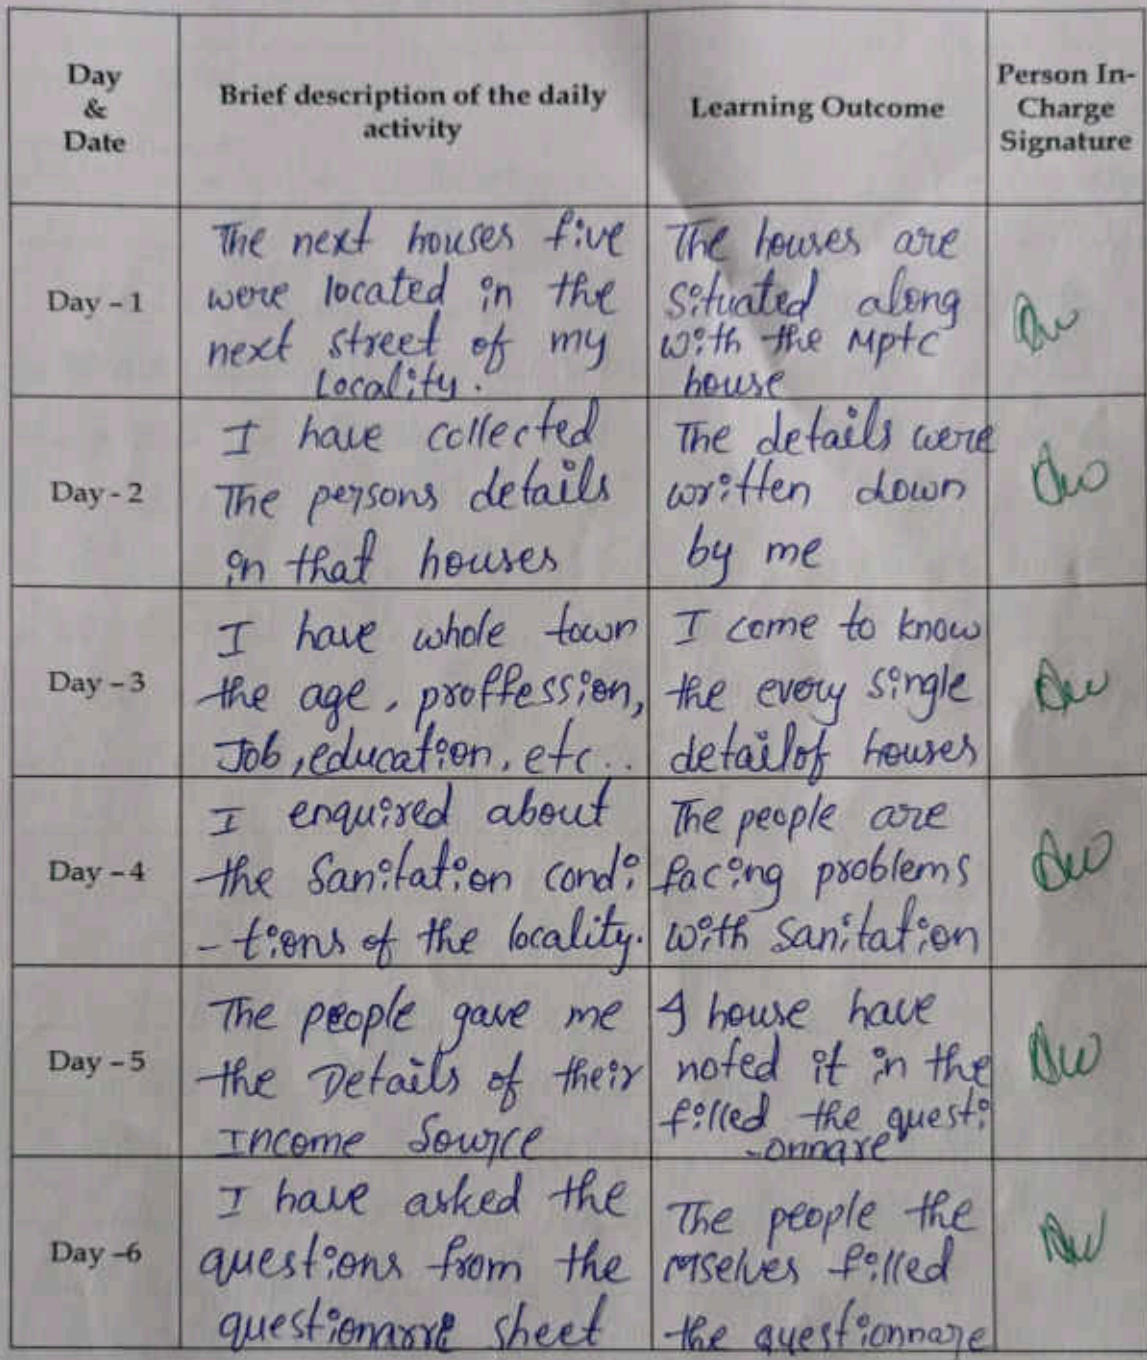 Day
&
Date
Brief description of the daily
activity
Learning Outcome
Person In-
Charge
Signature
Day - 1
The next houses five
were located in the
next street of my
Locality.
The houses are
situated along
with the Mptc
house
Day - 2
I have collected
The persons details
in that houses
The details were
written down
by me
Day - 3
I have whole town
the age, proffession,
Job, education, etc..
I come to know
the every single
detail of houses
Day - 4
I enquired about
the Sanitation condi
- tions of the locality.
The people are
facing problems
with Sanitation
Day - 5
The people gave me
the Details of their
Income Source
house have
noted it in the
filled the questi
-onnare
Day -6
I have asked the
questions from the
sheet
The people the
mselves filled
the questionnare